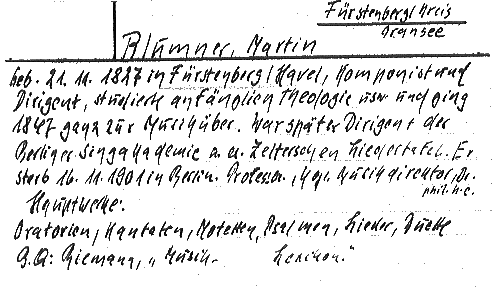 Fürstenberg/Kreis
Gransee
Blumner, Martin
Geb. 21. 11. 1827 in Fürstenberg/Havel, Komponist und
Dirigent, studierte anfänglich Theologie usw und ging
1847 ganz zur Musik über. War später Dirigent der
Berliner Singakademie u. a. Zelterschen Liedertafel. Er
starb 16. 11. 1901 in Berlin. Professor, Kgl. Musikdirektor, Dr.
phil. h.c.
Hauptwerke:
Oratorien, Kantaten, Motetten, Psalmen, Lieder, Duette
B.Q: Riemann, "Musik- Lexikon."